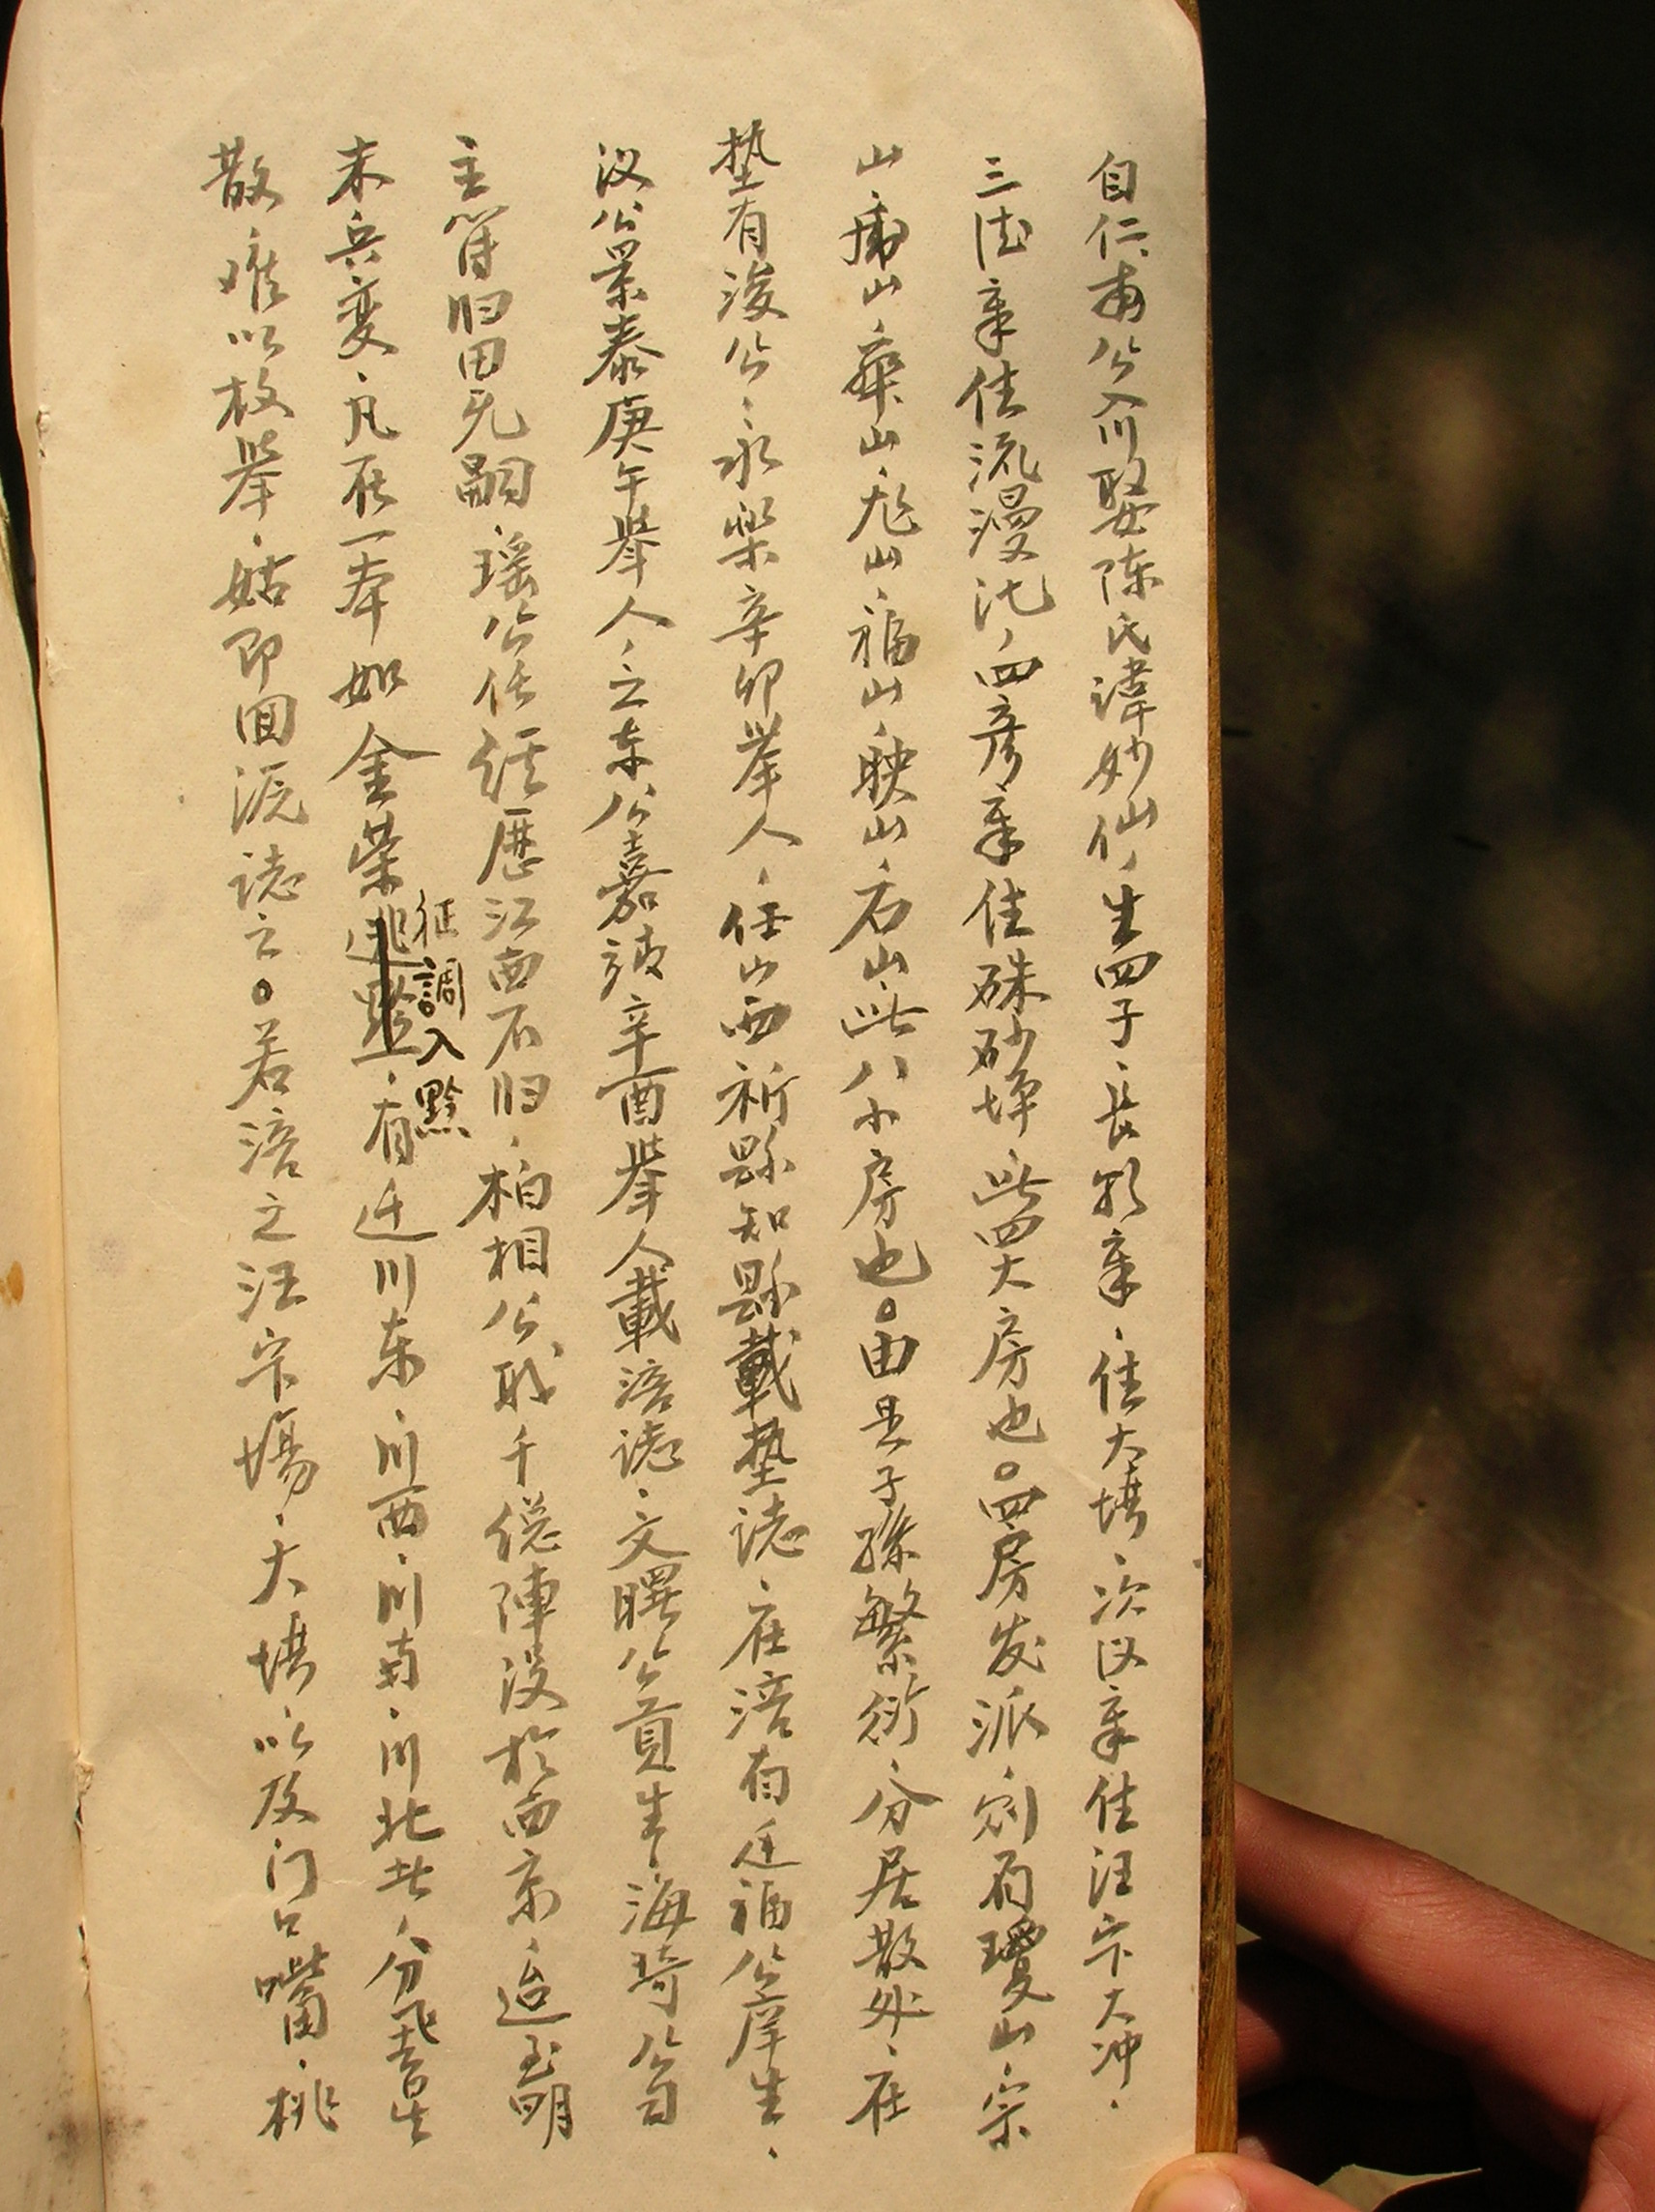 自仁甫公入川娶陈氏諱妙仙、生四子、長 章、住大塆、次汉章住汪家大冲、
三德章住流漫沱、四彦章住硃砂坪 此四大房也。四房发派、則有瓊山、宗
山、甫山、彝山、彪山、福山、映山、石山、此八小房也。由是子孫繁衍、分居散处、在
垫有浚公、永樂辛卯举人、任山西祈縣知縣載垫誌、在涪有廷福公庠生、
汉公景泰庚午举人、之东公嘉靖辛酉举人載涪誌、文曙公貢生、海琦公
主簿归田无嗣、瑶公任经歷江西不归、柏相公职千總陣没於西京、迨至明
末兵变、凡在一本如金荣征調入黔、有迁川东、川西、川南、川北者、分飛
散、难以枚举、姑即回源誌之。若涪之汪家場、大塆以及门口嘴、桃